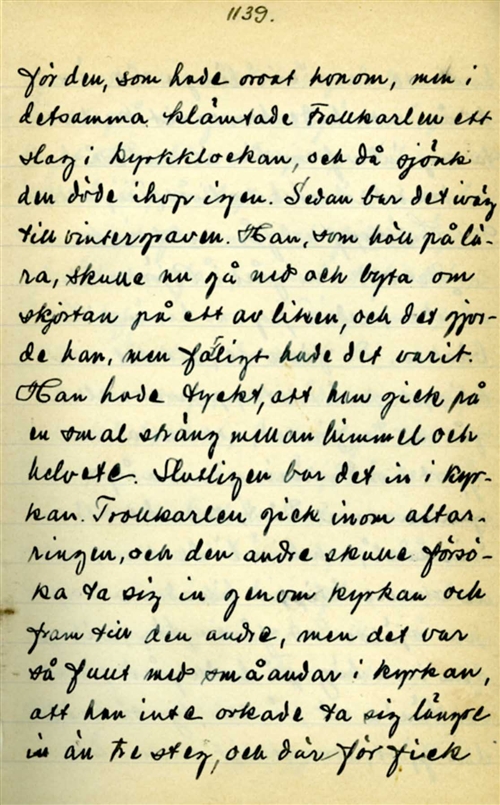 1139.
för den, som hade oroat honom, men i
detsamma klämtade Trollkarlen ett
slag i kyrkklockan, och då sjönk
den döde ihop igen. Sedan bar det iväg
till vintergraven. Han, som höll på lä-
ra, skulle nu gå ned och byta om
skjortan på ett av liken, och det gjor-
de han, men fåligt hade det varit.
Han hade tyckt, att han gick på
en smal sträng mellan himmel och
helvete. Slutligen bar det in i kyr-
kan. Trollkarlen gick inom altar-
ringen, och den andre skulle försö-
ka ta sig in genom kyrkan och
fram till den andre, men det var
så fullt med småandar i kyrkan,
att han inte orkade ta sig längre
in än tre steg, och därför fick